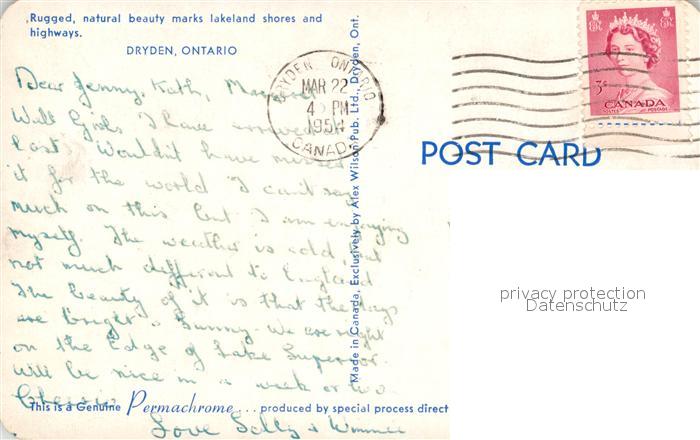 Rugged, natural beauty marks lakeland shores and
highways.
DRYDEN, ONTARIO
DRYDEN ONTARIO
MAR 22
4 PM
1954
CANADA
3¢
CANADA
POSTES POSTAGE
POST CARD
Dear Jenny, Kath, Margaret
Well Girls I have arrived at
last. Wouldn't have missed
it for the world. I can't say
much on this but I am enjoying
myself. The weather is cold, but
not much different to England
The beauty of it is that the days
are bright & Sunny. We are right
on the Edge of Lake Superior.
Will be nice in a week or two.
Cheerio
Love Sally &
Made in Canada, Exclusively by Alex Wilson Pub. Ltd., Dryden, Ont.
privacy protection
Datenschutz
This is a Genuine Permachrome... produced by special process direct